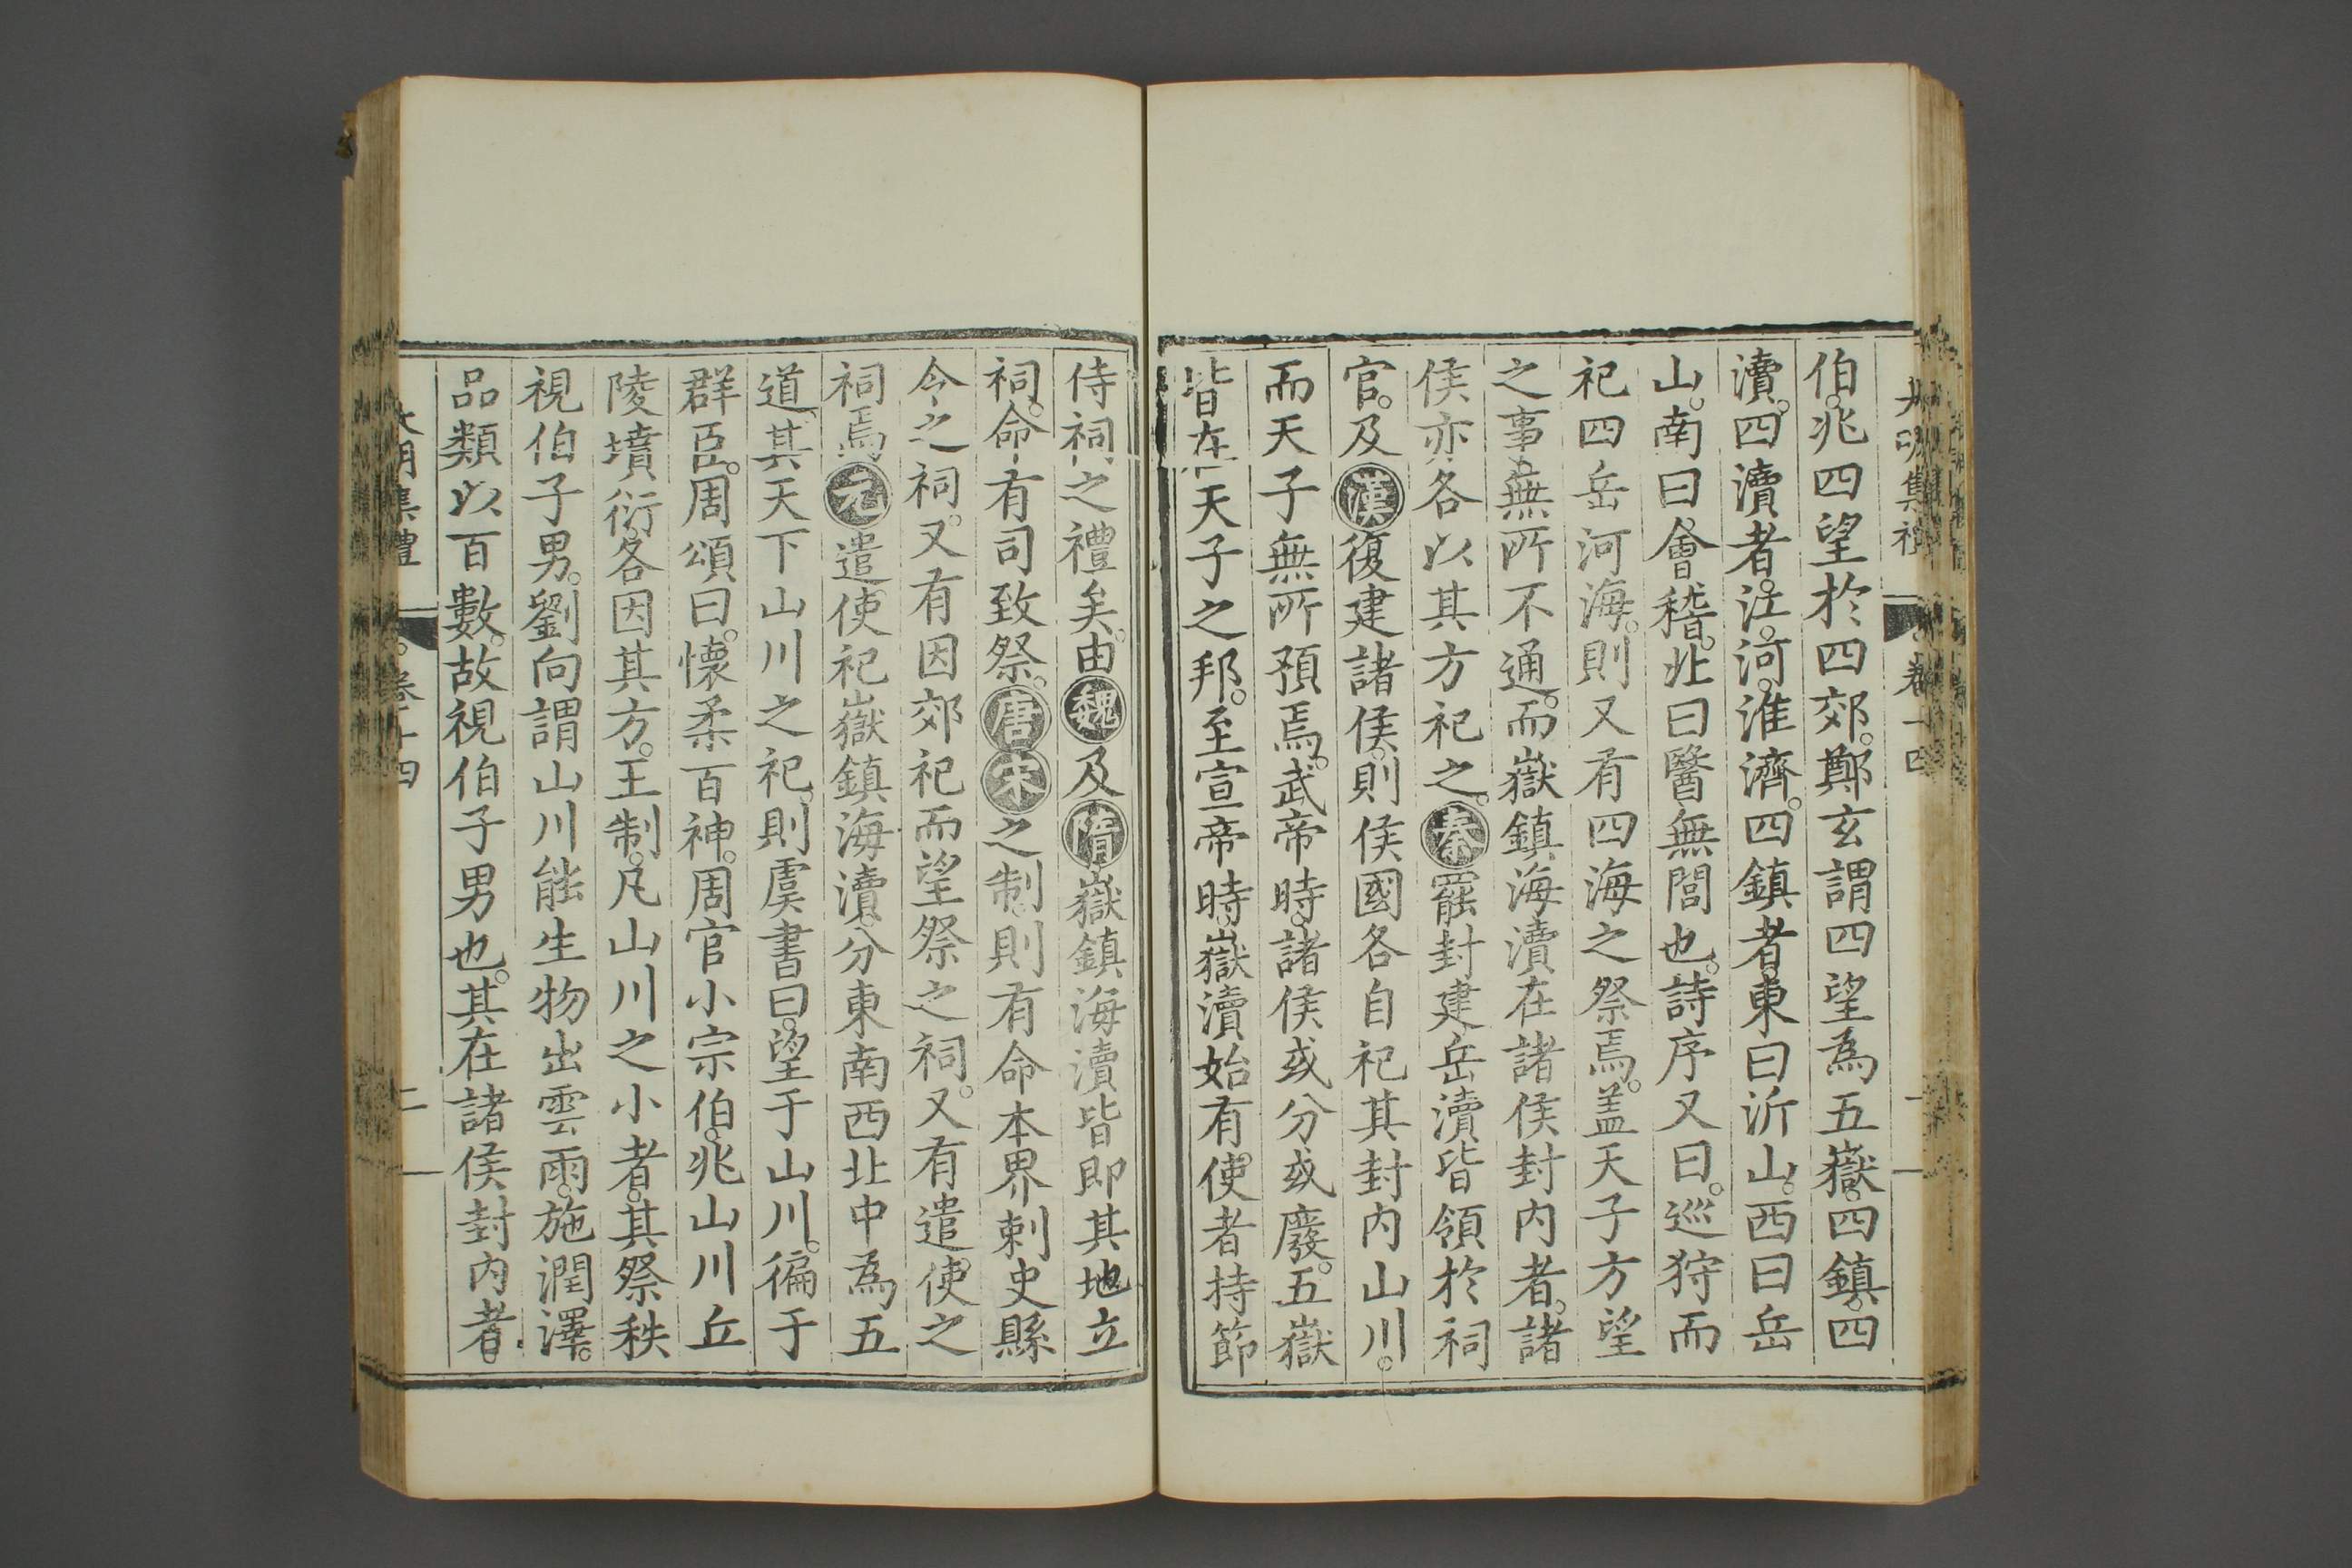 大明集禮
卷十四
二
伯。兆四望於四郊。鄭玄謂四望爲五嶽。四鎮。四
瀆。四瀆者。江。河。淮濟。四鎮者。東曰沂山。西曰岳
山。南曰會稽。北曰醫無閭也。詩序又曰。巡狩而
祀四岳河海。則又有四海之祭焉。盖天子方望
之事。無所不通。而嶽鎮海瀆在諸侯封内者。諸
侯亦各以其方祀之。秦罷封建。岳瀆皆領於祠
官。及漢復建諸侯。則侯國各自祀其封内山川。
而天子無所預焉。武帝時。諸侯或分或廢。五嶽
皆在天子之邦。至宣帝時。嶽瀆始有使者持節
侍祠之禮矣。由魏及隋嶽鎮海瀆皆即其地立
祠。命有司致祭。唐宋之制。則有命本界刺史縣
令之祠。又有因郊祀而望祭之祠。又有遣使之
祠焉元遣使祀嶽鎮海瀆。分東南西北中爲五
道。其天下山川之祀。則虞書曰。望于山川。徧于
群臣。周頌曰。懷柔百神。周官小宗伯。兆山川丘
陵墳衍。各因其方。王制。凡山川之小者。其祭秩
視伯子男。劉向謂山川能生物出雲雨。施潤澤。
品類以百數。故視伯子男也。其在諸侯封内者。
大明集禮
卷十四
二